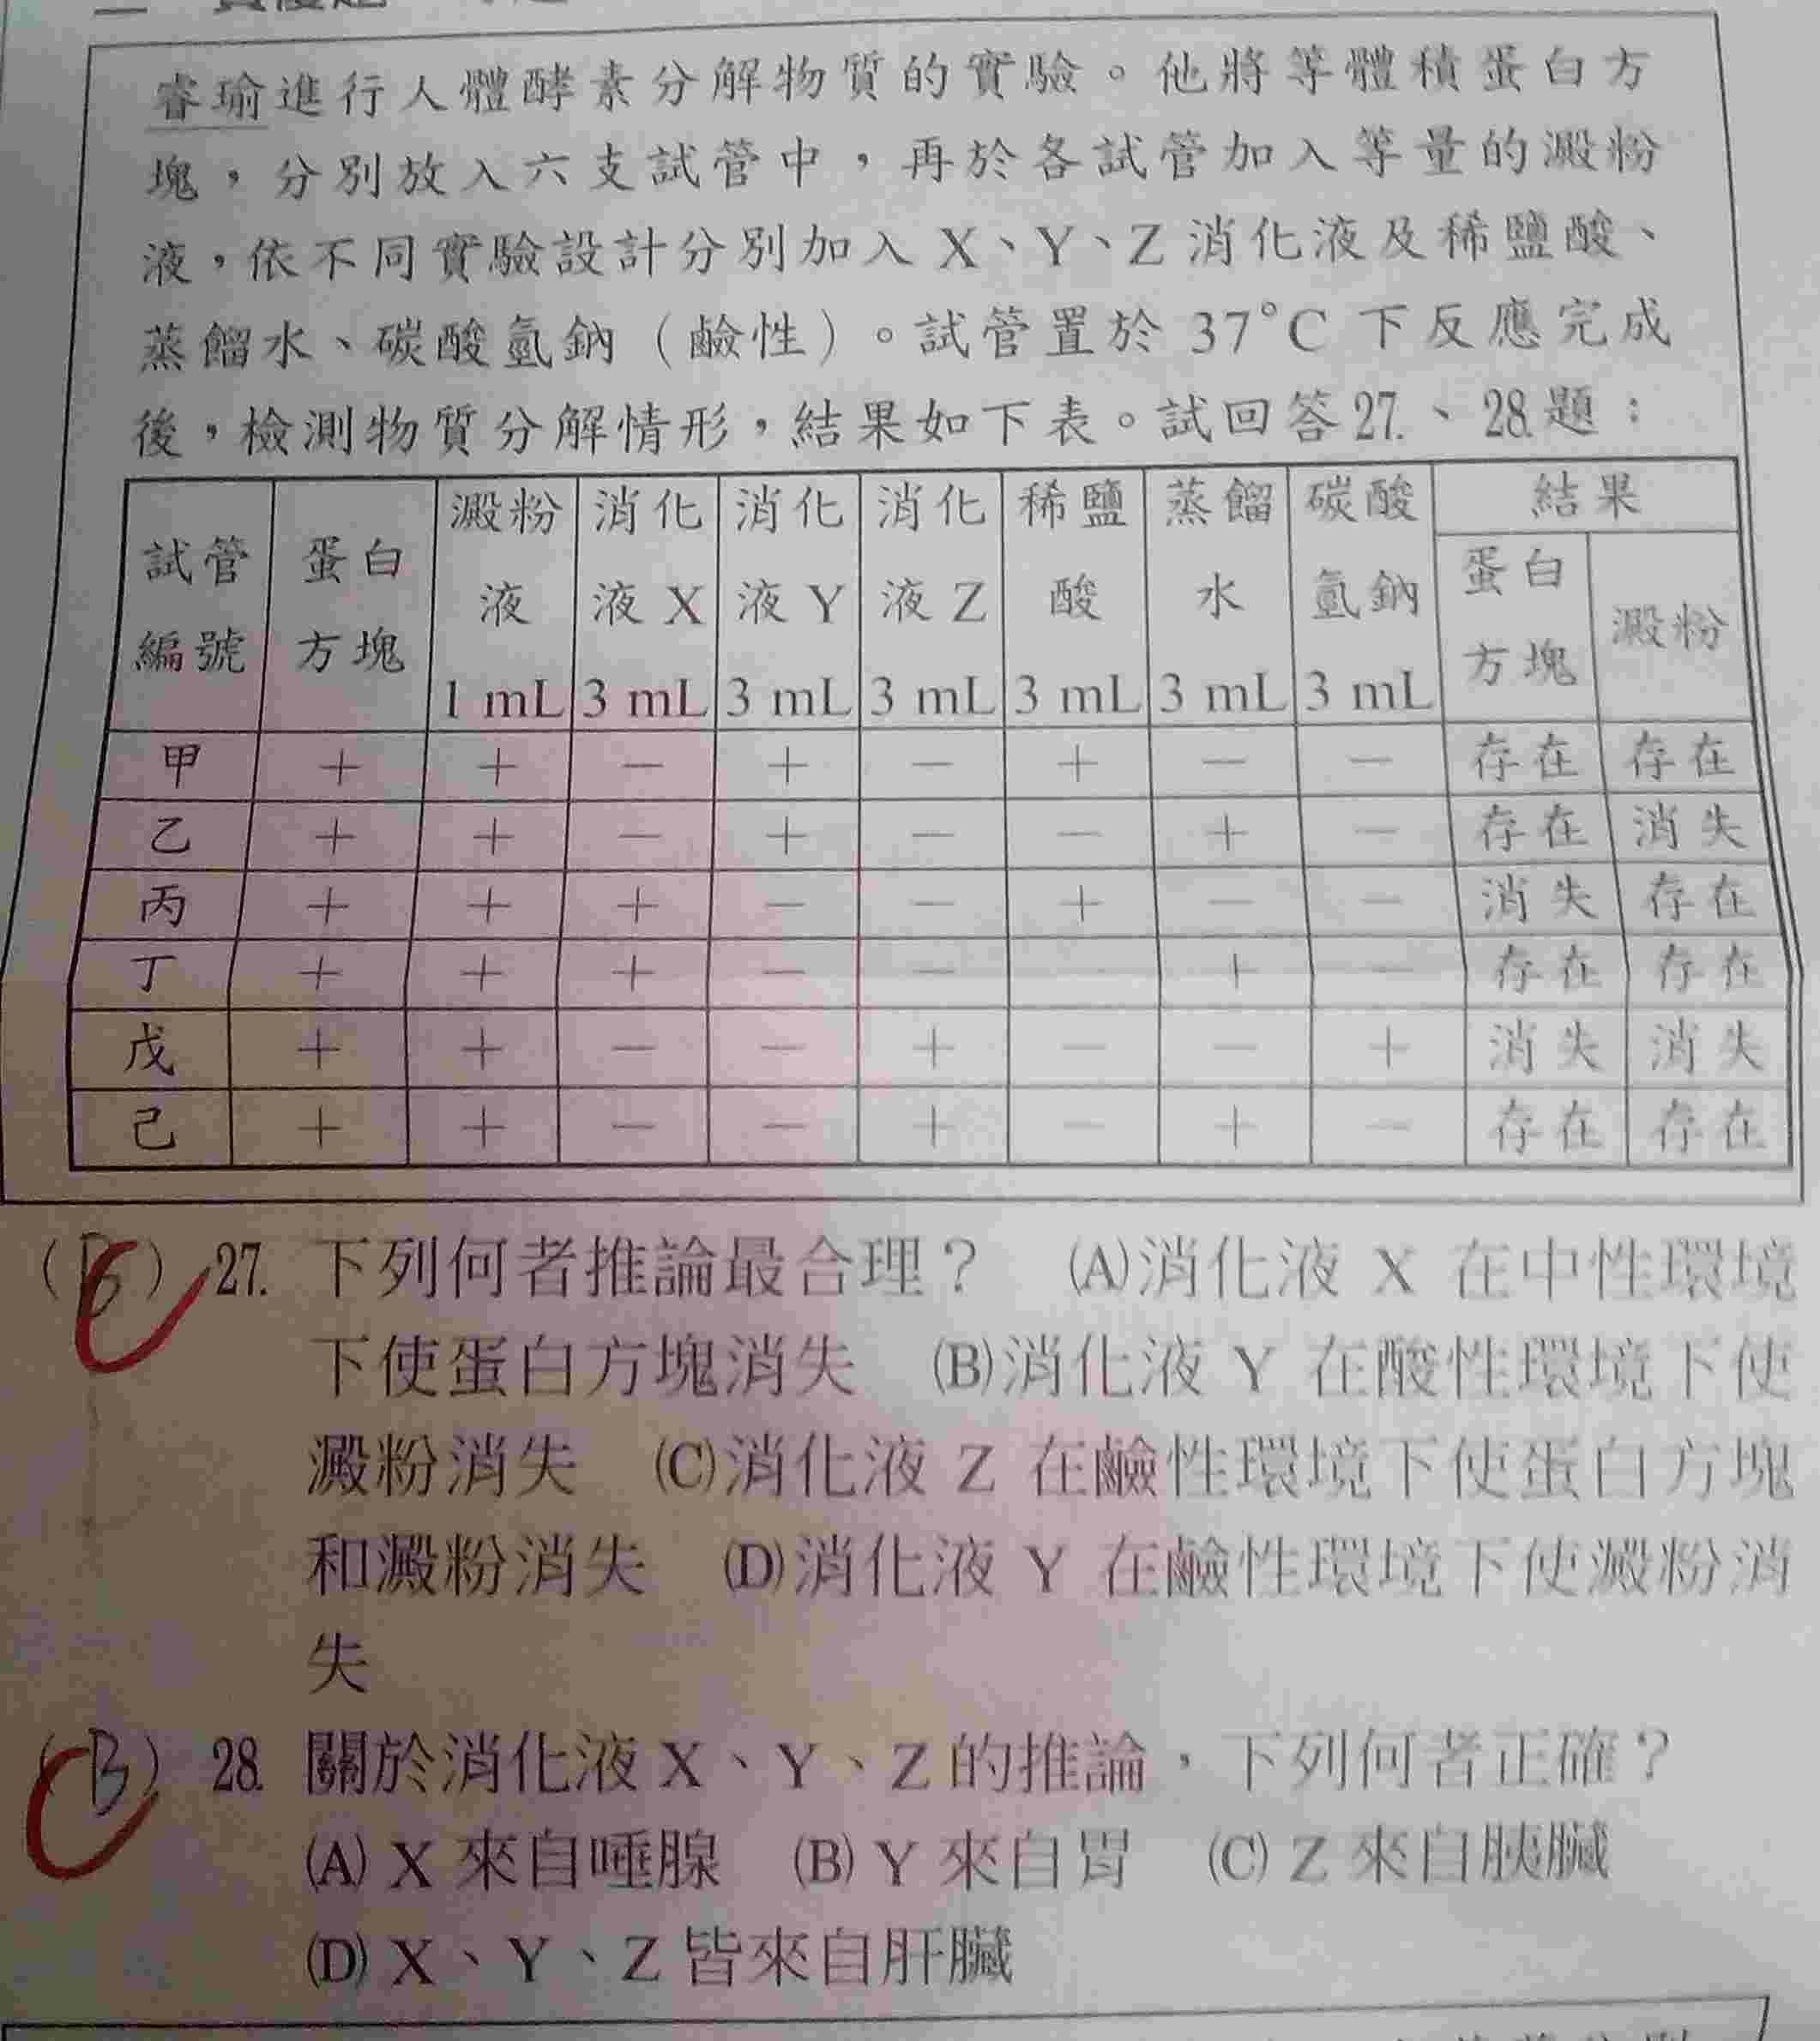 睿瑜進行人體酵素分解物質的實驗。他將等體積蛋白方
塊，分別放入六支試管中，再於各試管加入等量的澱粉
液，依不同實驗設計分別加入 X、Y、Z 消化液及稀鹽酸、
蒸餾水、碳酸氫鈉（鹼性）。試管置於 37°C 下反應完成
後，檢測物質分解情形，結果如下表。試回答27.、28.題：
試管編號 蛋白方塊 澱粉液 1 mL 消化液 X 3 mL 消化液 Y 3 mL 消化液 Z 3 mL 稀鹽酸 3 mL 蒸餾水 3 mL 碳酸氫鈉 3 mL 結果 蛋白方塊 澱粉
甲 + + − + − + − − 存在 存在
乙 + + − + − − + − 存在 消失
丙 + + + − − + − − 消失 存在
丁 + + + − − − + − 存在 存在
戊 + + − − + − − + 消失 消失
己 + + − − + − + − 存在 存在
( B ) 27. 下列何者推論最合理？ (A)消化液 X 在中性環境
下使蛋白方塊消失 (B)消化液 Y 在酸性環境下使
澱粉消失 (C)消化液 Z 在鹼性環境下使蛋白方塊
和澱粉消失 (D)消化液 Y 在鹼性環境下使澱粉消
失
( B ) 28. 關於消化液 X、Y、Z 的推論，下列何者正確？
(A) X 來自唾腺 (B) Y 來自胃 (C) Z 來自胰臟
(D) X、Y、Z 皆來自肝臟